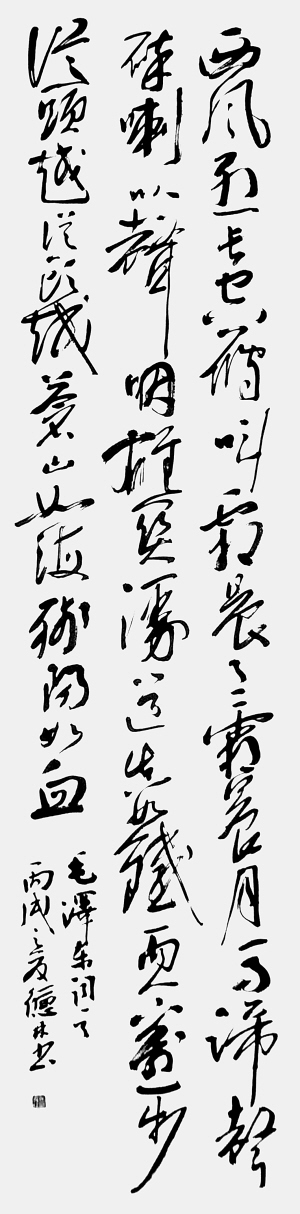 西風烈長空雁叫霜晨月霜晨月馬蹄聲
碎喇叭聲咽雄關漫道真如鐵而今邁步
從頭越從頭越蒼山如海殘陽如血
毛澤東詞一首
丙戌之夏德林书